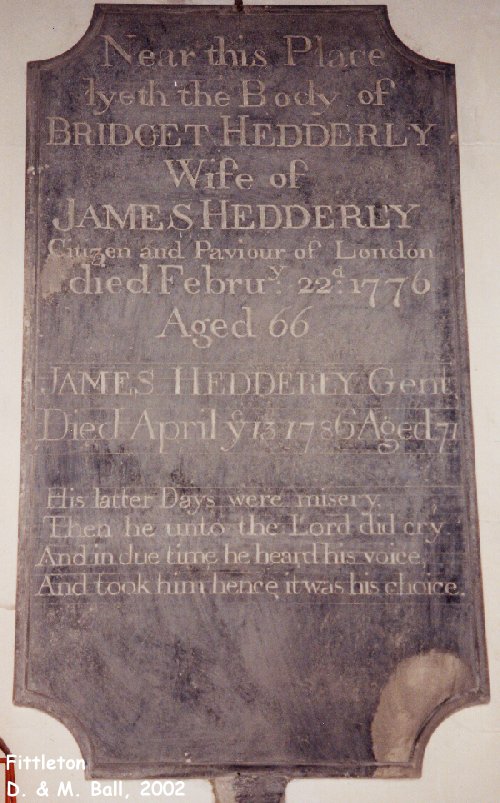 Near this Place
lyeth the Body of
BRIDGET HEDDERLY
Wife of
JAMES HEDDERLY
Citizen and Paviour of London
died Februʸ. 22ᵈ. 1776
Aged 66
JAMES HEDDERLY Gent
Died April yᵉ 13 1786 Aged 71
His latter Days were misery
Then he unto the Lord did cry
And in due time he heard his voice,
And took him hence, it was his choice.
Fittleton
D. & M. Ball, 2002